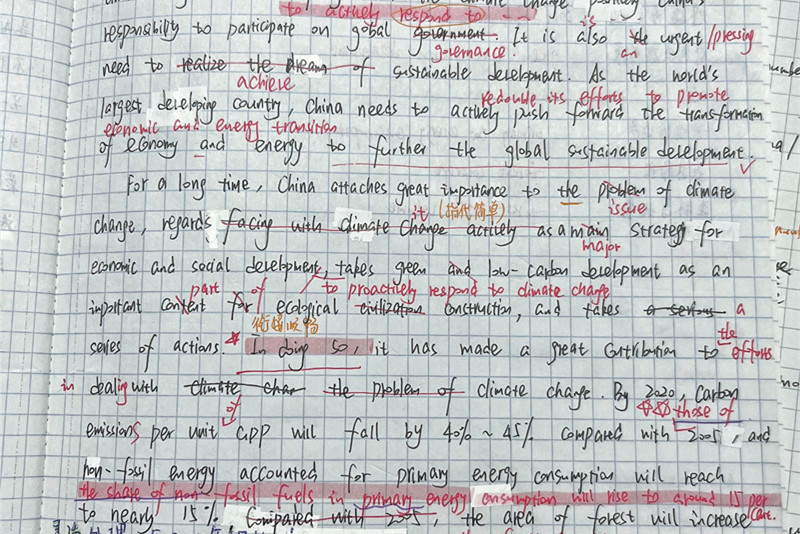 climate change positively China's
to actively respond to ---
responsibility to participate on global government. It is also the urgent /pressing
is
governance.
an
need to realize the dream of sustainable development. As the world's
achieve
redouble its efforts to promote
largest developing country, China needs to actively push forward the transformation
economic and energy transition
of economy and energy to further the global sustainable development.
For a long time, China attaches great importance to the problem of climate
issue
it (指代简单)
change, regards facing with climate change actively as a main strategy for
major
economic and social development, takes green and low-carbon development as an
part of to proactively respond to climate change
important content for ecological civilization construction, and takes a serious a
衔接顺畅
the
series of actions. In doing so, it has made a great contribution to efforts
in dealing with climate chan the problem of climate change. By 2020, carbon
of
those of
emissions per unit GDP will fall by 40% ~ 45% compared with 2005, and
non-fossil energy accounted for primary energy consumption will reach
the share of non-fossil fuels in primary energy consumption will rise to around 15 per cent.
to nearly 15% compared with 2005, the area of forest will increase